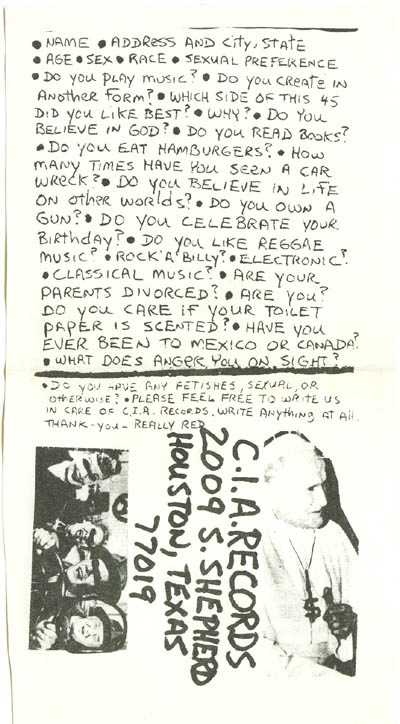 • NAME • ADDRESS AND City, STATE
• AGE • SEX • RACE • SEXUAL PREFERENCE
• Do you PLAY MUSIC? • Do you CREATE IN
ANOTHER FORM? • WHICH SIDE OF THIS 45
DiD you LIKE BEST? • WHY? • Do You
BELIEVE IN GOD? • Do you READ BOOKS?
• Do you EAT HAMBURGERS? • How
MANY TIMES HAVE YOU SEEN A CAR
WRECK? • Do you BELIEVE IN LIFE
ON other worlds? • Do you OWN A
GUN? • DO you CELEBRATE YOUR
Birthday? • Do you LIKE REGGAE
MUSIC? • ROCK'A'BILLY? • ELECTRONIC?
• CLASSICAL MUSIC? • ARE YOUR
PARENTS DIVORCED? • ARE you?
DO you CARE if YOUR TOILET
PAPER IS SCENTED? • HAVE you
EVER BEEN TO MEXICO OR CANADA?
• WHAT DOES ANGER YOU ON SIGHT?
• DO you HAVE ANY FETISHES, SEXUAL, OR
OtherwisE? • PLEASE FEEL FREE TO WRITE US
IN CARE OF C.I.A. RECORDS. WRITE ANythiNg AT All.
THANK-you- REALLY RED
C.I.A. RECORDS
2009 S. SHEPHERD
HOUSTON, TEXAS
77019